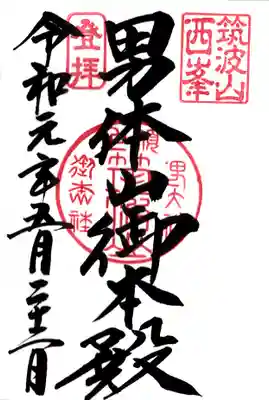 筑波山
西峯
登拝
男体山御本殿
御本社
令和元年五月二十一日